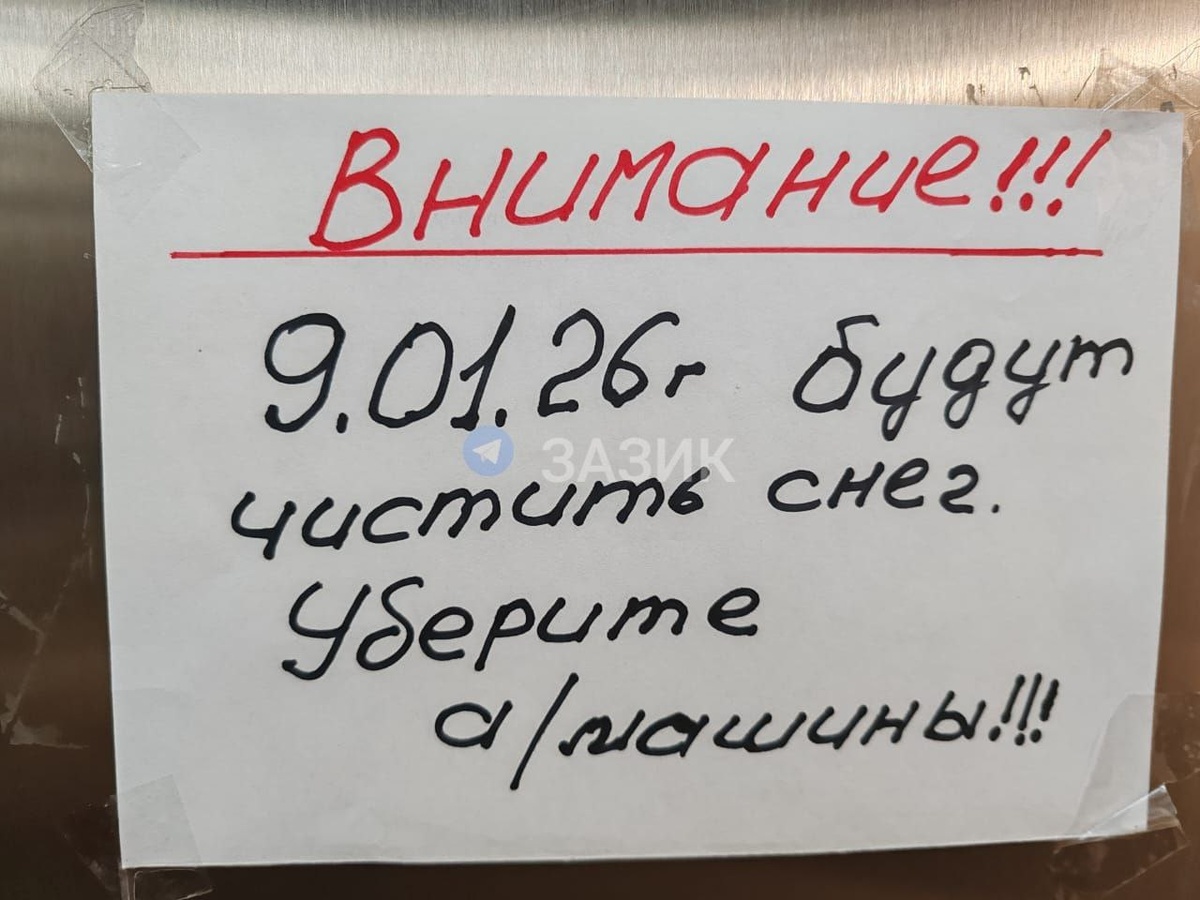 Внимание!!!
9.01.26г будут
ЗАЗИК
чистить снег.
Уберите
а/машины!!!